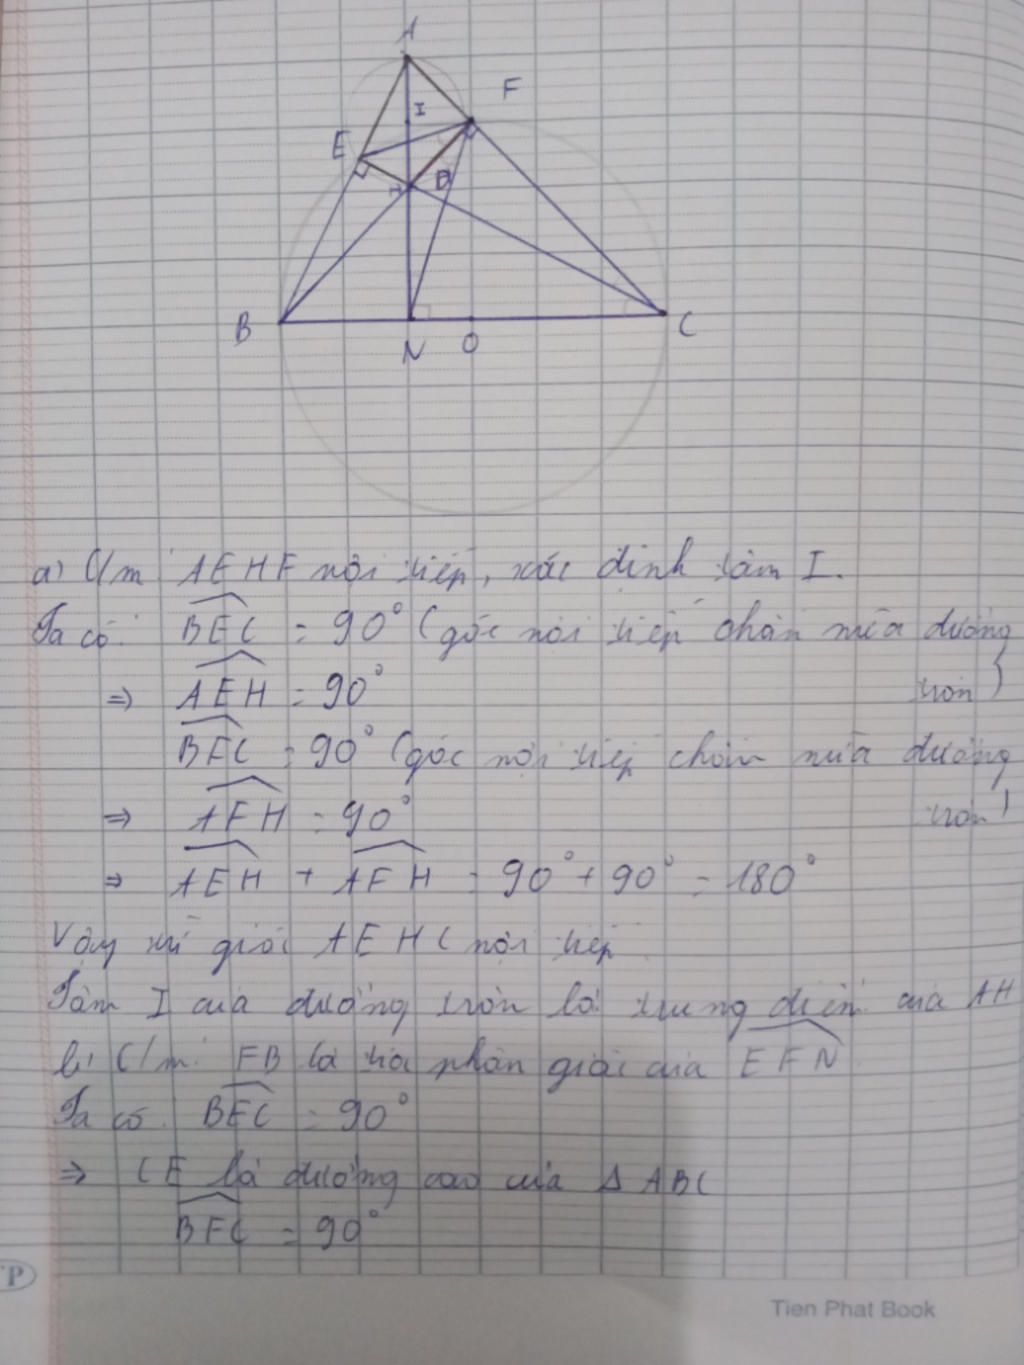 A
F
I
E
H
D
B
N
O
C
a) C/m: AEHF nội tiếp, xác định tâm I.
Ta có: BEC = 90° (góc nội tiếp chắn nửa đường
⇒ AEH = 90° tròn)
BFC = 90° (góc nội tiếp chắn nửa đường
⇒ AFH = 90° tròn)
⇒ AEH + AFH = 90° + 90° = 180°
Vậy tứ giác AEHC nội tiếp
Tâm I của đường tròn là trung điểm của AH
b) C/m: FB là tia phân giác của EFN.
Ta có: BEC = 90°
⇒ CE là đường cao của Δ ABC
BFC = 90°
TP
Tien Phat Book